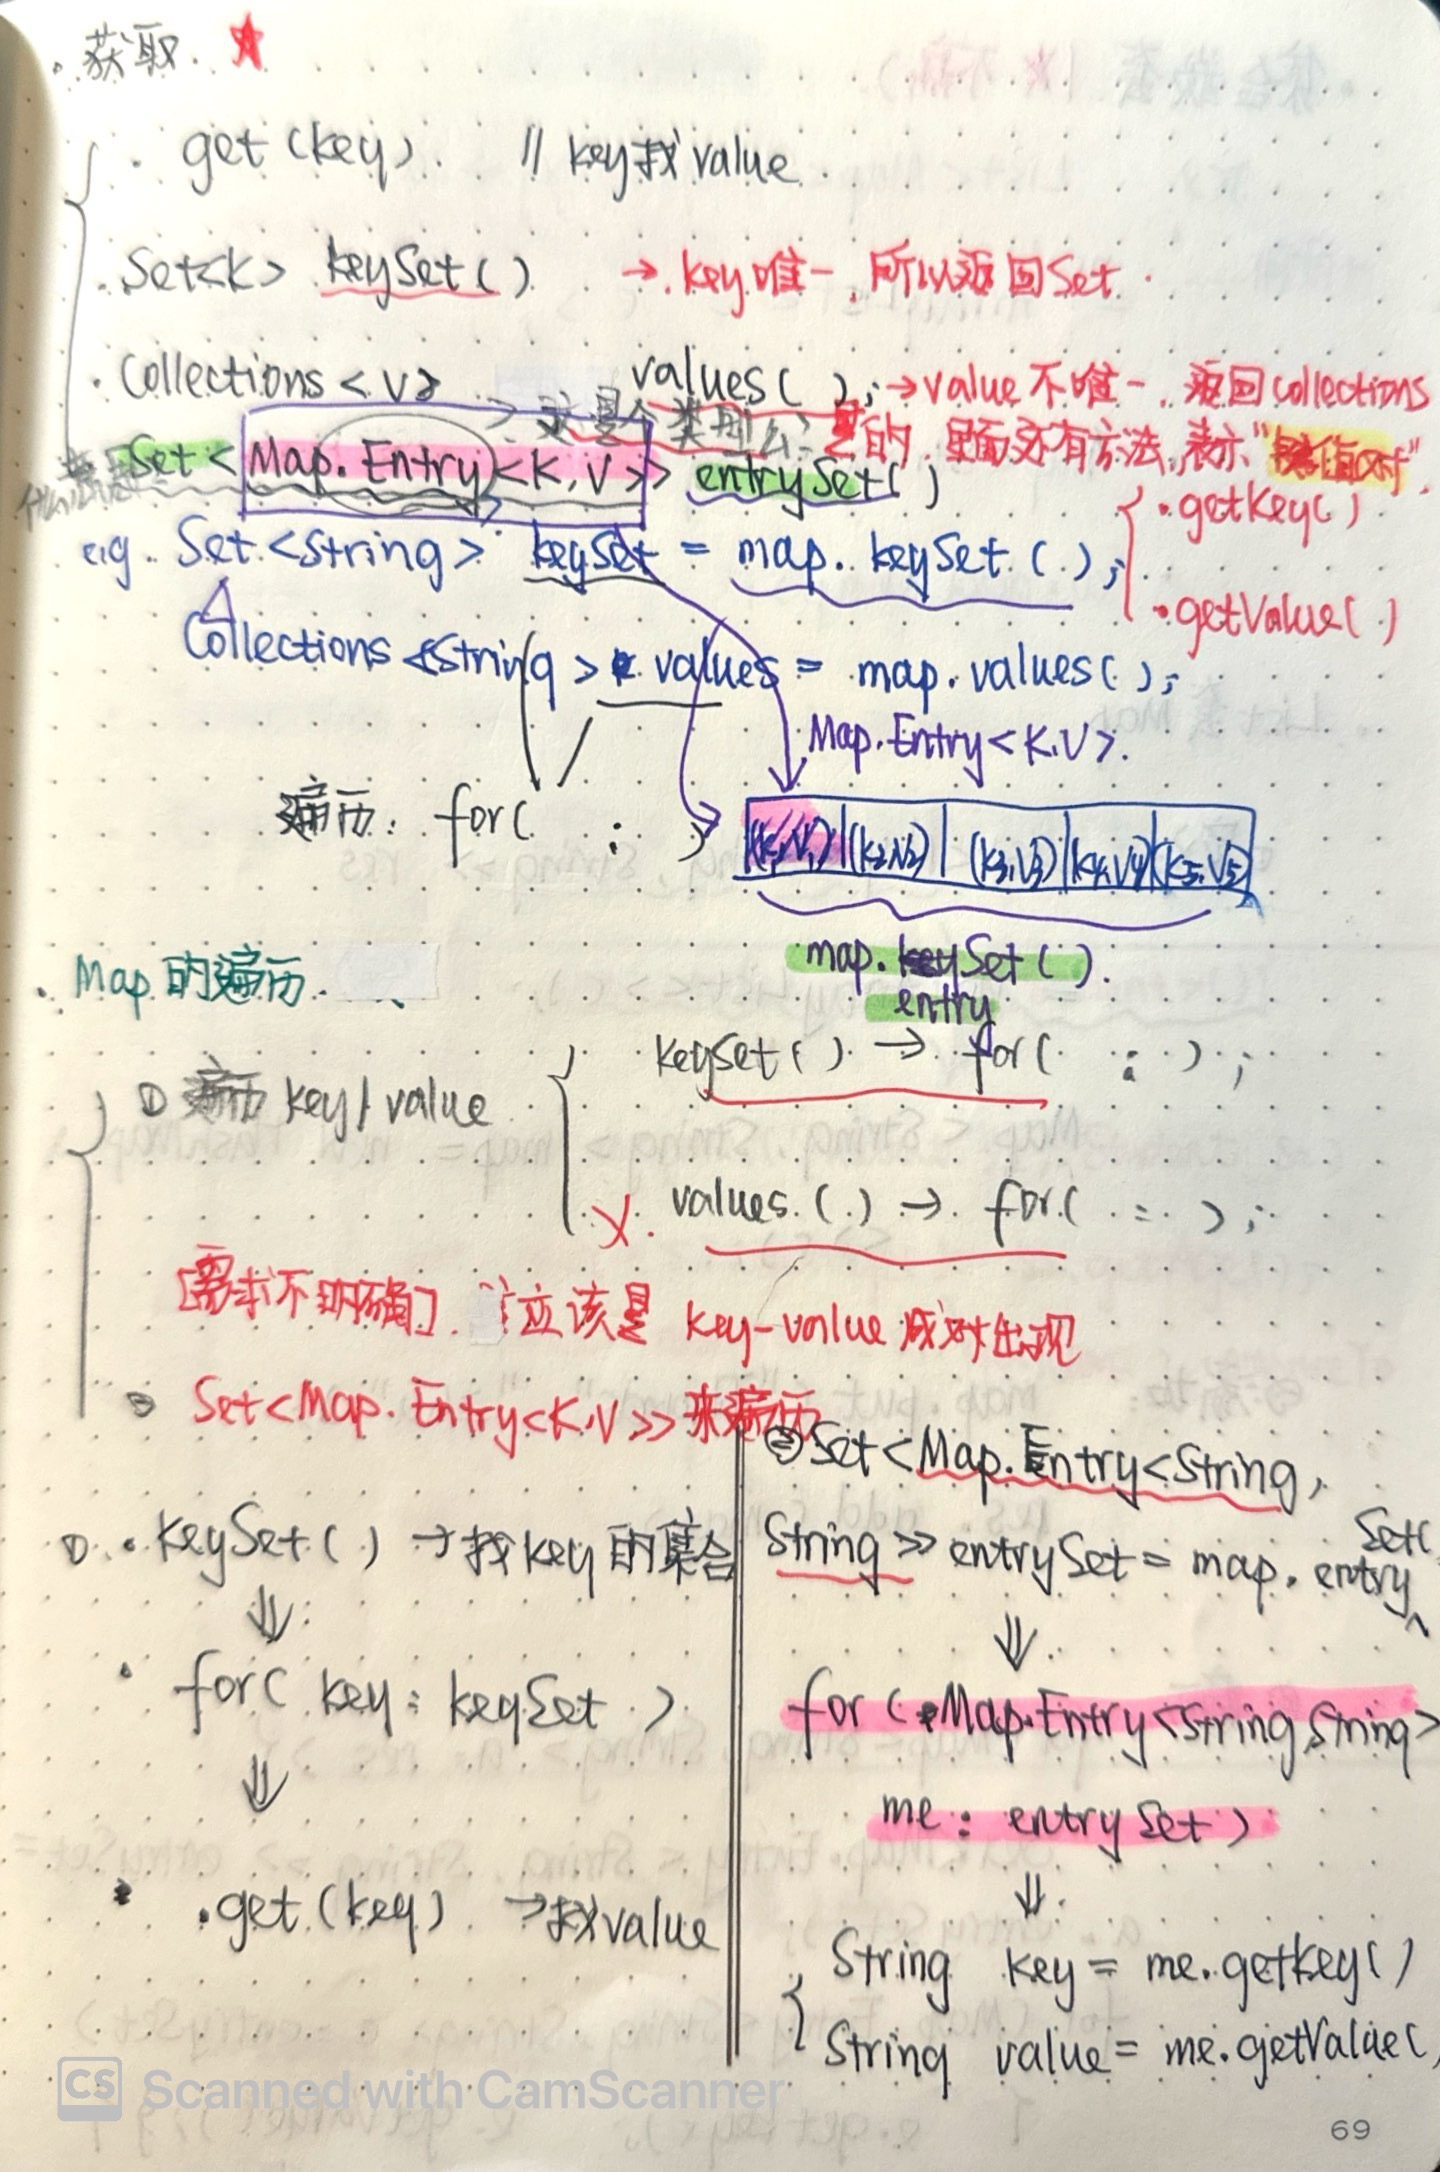 · 获取. ★
· get (key). // key找value
· Set<K> keySet( ) → key唯一, 所以返回Set
· Collections <V> values( ); → value不唯一, 返回collections
→ 这是个类型么? 是的, 里面还有方法, 表示"键值对",
Set< Map.Entry<K,V>> entrySet( )
· getKey( )
· getValue( )
e.g. Set <String> keySet = map. keySet ( );
Collections <String> values = map.values( );
Map.Entry<K.V>.
遍历: for( : )
(K1,V1) (K2,V2) (K3,V3) (K4,V4) (K5,V5)
map. keySet ( ).
entry
· Map 的遍历.
① 遍历 key/value
keySet( ) → for( : );
X. values.( ) → for( : );
[需求不明确]. 应该是 key-value 成对出现
② Set<Map.Entry<K,V>> 来遍历
① · keySet( ) → 找key的集合
⇓
· for( key : keySet )
⇓
· .get.(key) → 找value
② Set <Map.Entry<String,
String >> entrySet = map. entry
Set(
⇓
for ( Map.Entry<String,String>
me : entrySet )
⇓
String key = me.getkey( )
String value = me.getValue(
CS Scanned with CamScanner
69